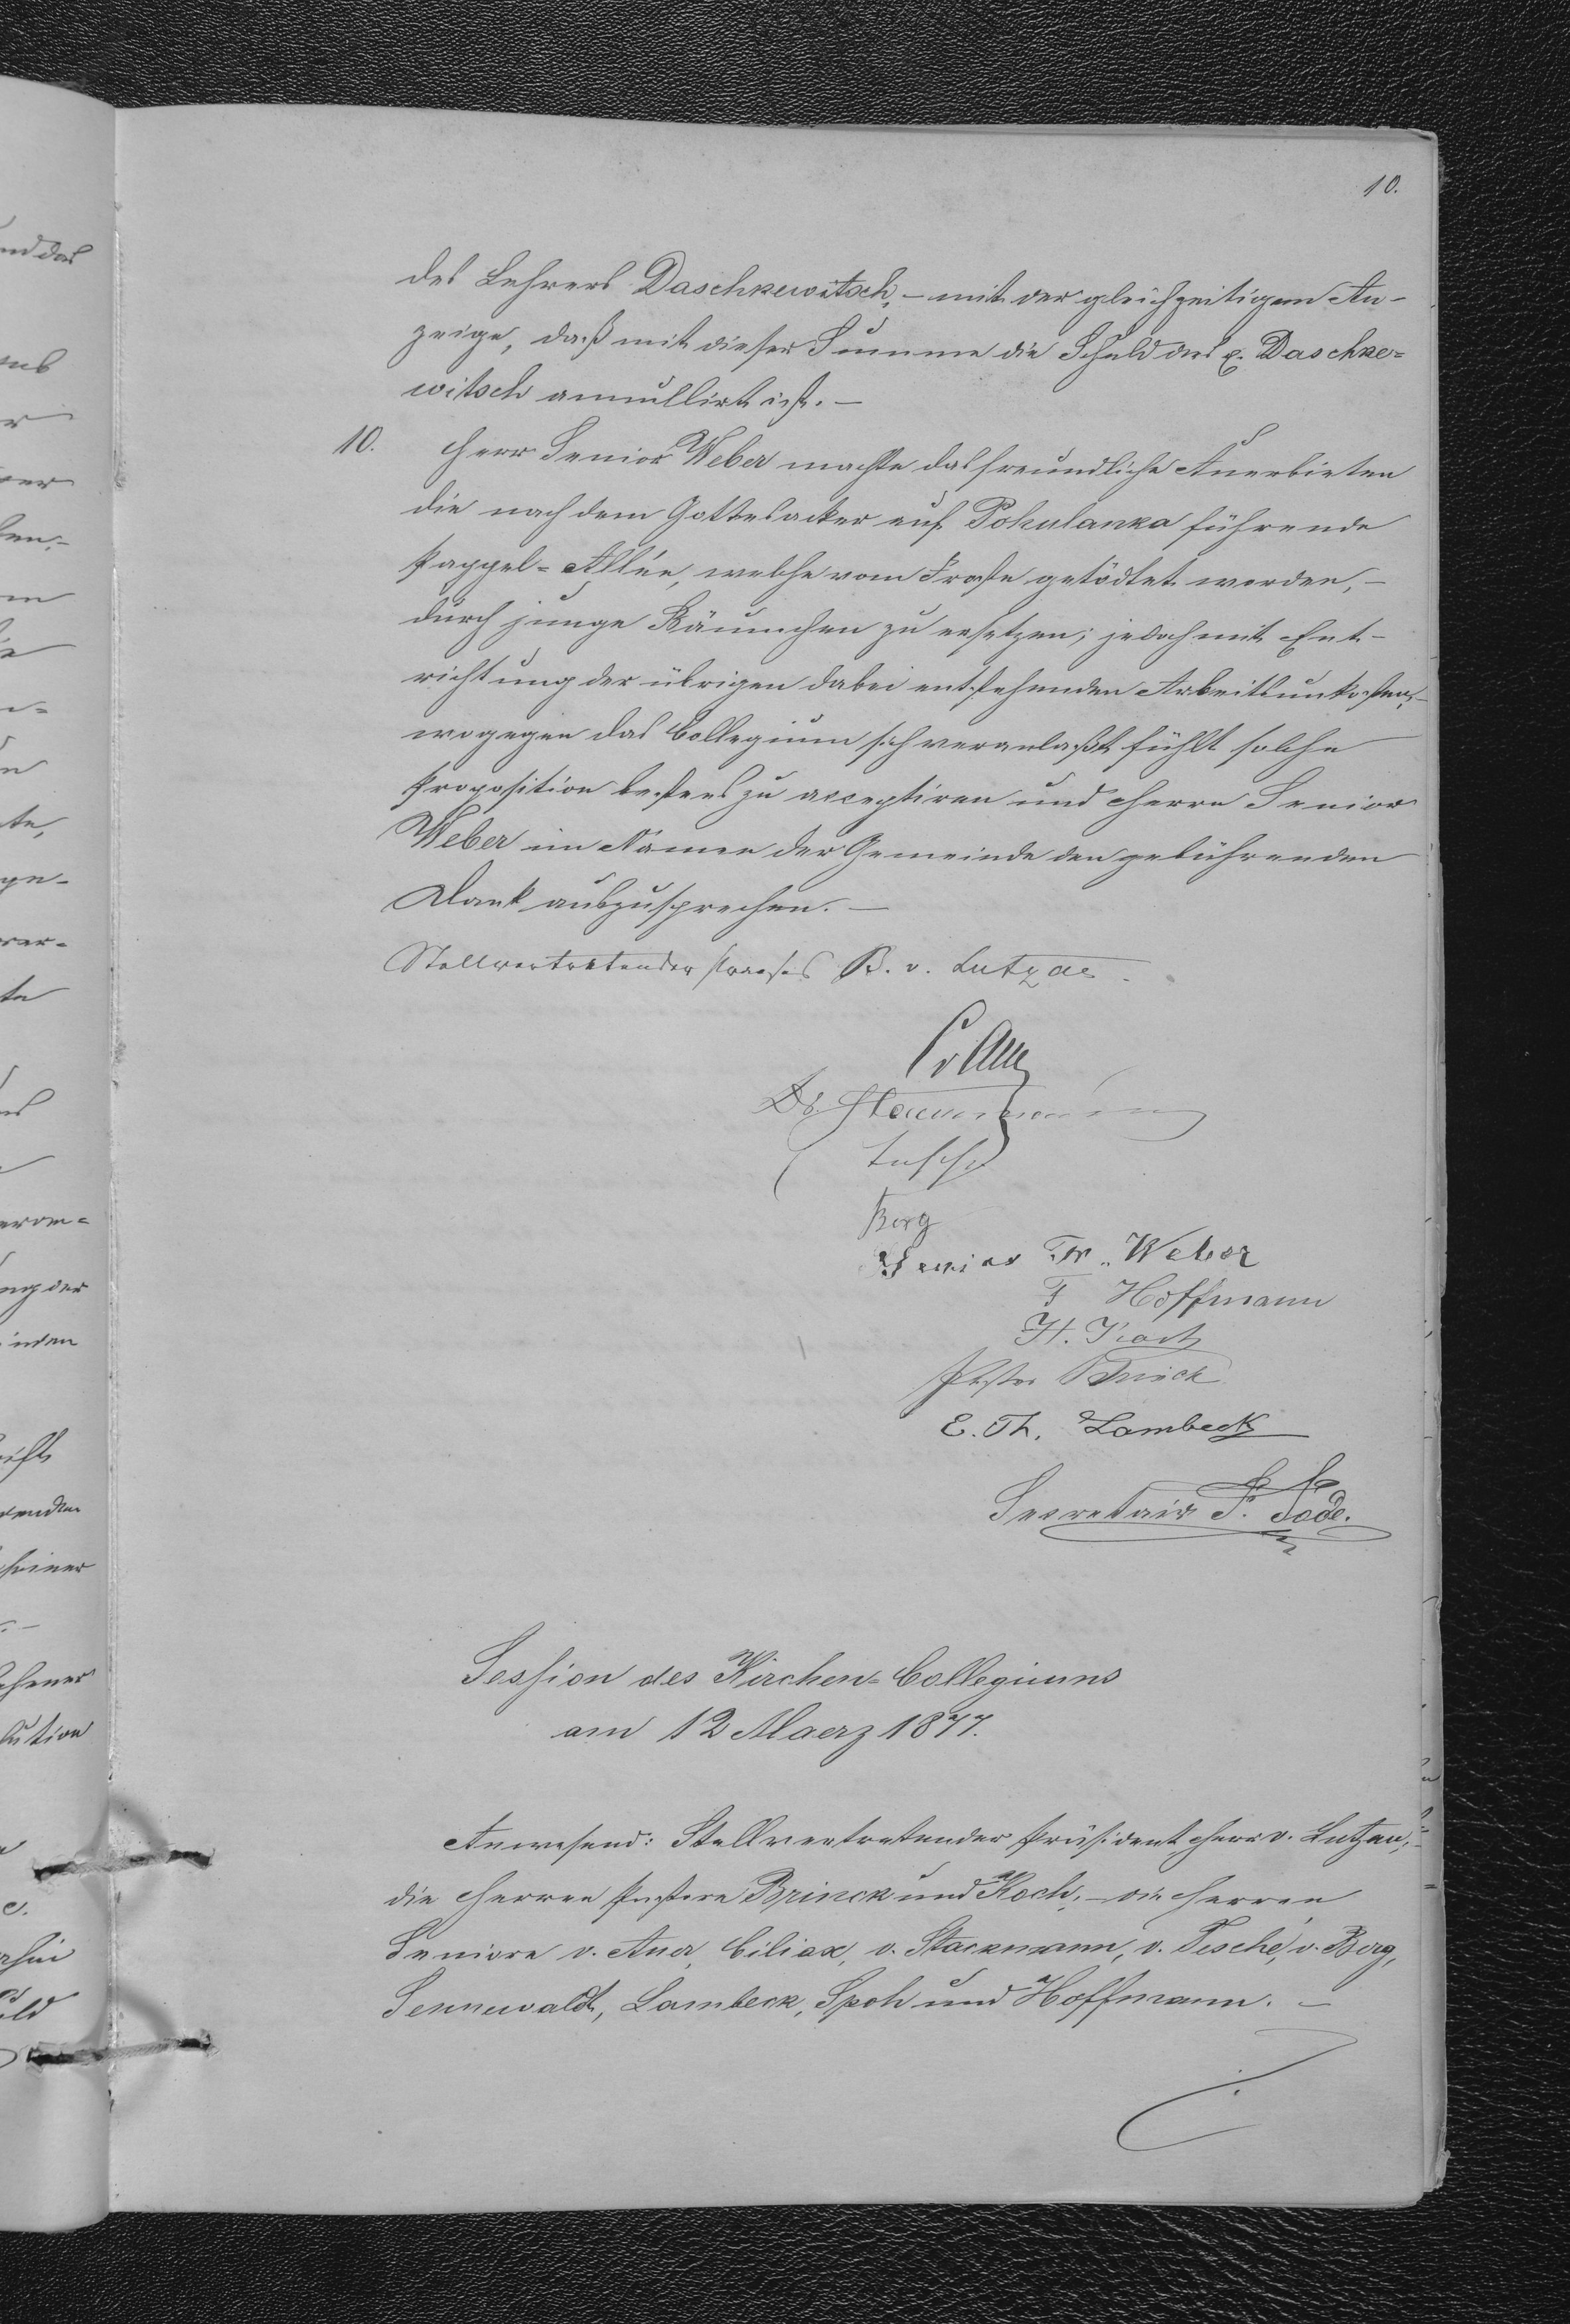 10.
des Lehrers Daschkewitsch, – mit der gleichzeitigen An-
zeige, daß mit dieser Summe die Schuld des p. Daschke=
witsch annullirt ist. –
10. Herr Senior Weber machte das freundliche Anerbieten
die nach dem Gottesacker auf Pohulanka führende
Pappel=Allée, welche vom Froste getödtet worden, –
durch junge Bäumchen zu ersetzen; jedoch mit Ent-
richtung der übrigen dabei entstehenden Arbeitsunkosten, –
wogegen das Collegium sich veranlaßt fühlt solche
Proposition bestens zu acceptiren und Herrn Senior
Weber im Namen der Gemeinde den gebührenden
Dank auszusprechen. –
Stellvertretender Praeses B. v. Lutzau.
Dr. Stackmann
Berg
Senior Fr. Weber
F Hoffmann
Pastor Brinck
E. Th. Lambeck
Secretair F. Sode.
Session des Kirchen=Collegiums
am 12 Maerz 1877.
Anwesend: Stellvertretender Präsident Herr v. Lutzau, –
die Herren Pastore Brinck und Koch, – die Herren
Seniore v. Auer, Ciliax, v. Stackmann, v. Tesché, v. Berg,
Sennewaldt, Lambeck, Spoh und Hoffmann. –